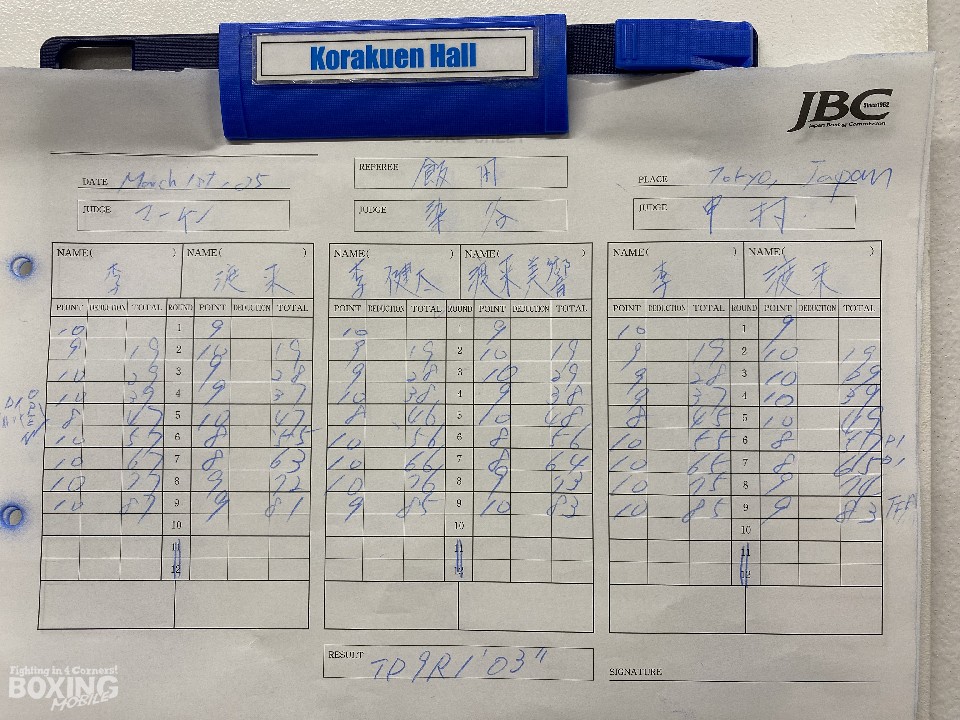 Korakuen Hall
JBC Since1952
Japan Boxing Commission
DATE March 1st, 25 REFEREE 飯田 PLACE Tokyo, Japan
JUDGE JUDGE 染谷 JUDGE 中村
NAME( ) NAME( ) NAME( ) NAME( ) NAME( ) NAME( )
李 渡来 李健太 渡来美響 李 渡来
POINT DEDUCTION TOTAL ROUND POINT DEDUCTION TOTAL POINT DEDUCTION TOTAL ROUND POINT DEDUCTION TOTAL POINT DEDUCTION TOTAL ROUND POINT DEDUCTION TOTAL
10 1 9 10 1 9 10 1 9
9 19 2 10 19 9 19 2 10 19 9 19 2 10 19
10 29 3 9 28 9 28 3 10 29 9 28 3 10 29
10 39 4 9 37 10 38 4 9 38 9 37 4 10 39
8 47 5 10 47 8 46 5 10 48 8 45 5 10 49
10 57 6 8 55 10 56 6 8 56 10 55 6 8 57
10 67 7 8 63 10 66 7 8 64 10 65 7 8 65
10 77 8 9 72 10 76 8 9 73 10 75 8 9 74
10 87 9 9 81 9 85 9 10 83 10 85 9 9 83
10 10 10
11 11 11
12 12 12
RESULT TD9R1'03"
SIGNATURE
Fighting in 4 Corners!
BOXING
MOBILE